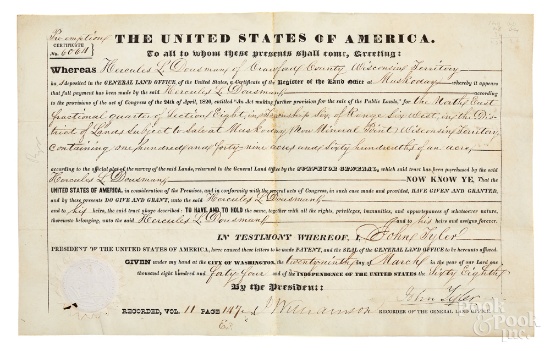 Pre-emption
CERTIFICATE
No. 6061
THE UNITED STATES OF AMERICA.
To all to whom these presents shall come, Greeting:
WHEREAS Hercules L. Dousman, of Crawford County, Wisconsin Territory
has deposited in the GENERAL LAND OFFICE of the United States, a Certificate of the Register of the Land Office at Muskoday whereby it appears
that full payment has been made by the said Hercules L. Dousman according
to the provisions of the act of Congress of the 24th of April, 1820, entitled "An Act making further provision for the sale of the Public Lands," for the North East
fractional quarter of Section Eight, in Township Six, of Range Six West, in the Dis-
trict of Lands Subject to Sale at Muskoday (now Mineral Point) Wisconsin Territory,
containing one hundred and forty nine acres and sixty hundredths of an acre,
according to the official plat of the survey of the said Lands, returned to the General Land Office by the SURVEYOR GENERAL, which said tract has been purchased by the said
Hercules L. Dousman, NOW KNOW YE, That the
UNITED STATES OF AMERICA, in consideration of the Premises, and in conformity with the several acts of Congress, in such case made and provided, HAVE GIVEN AND GRANTED,
and by these presents DO GIVE AND GRANT, unto the said Hercules L. Dousman,
and to his heirs, the said tract above described: TO HAVE AND TO HOLD the same, together with all the rights, privileges, immunities, and appurtenances of whatsoever nature,
thereunto belonging, unto the said Hercules L. Dousman, and to his heirs and assigns forever.
IN TESTIMONY WHEREOF, I, John Tyler
PRESIDENT OF THE UNITED STATES OF AMERICA, have caused these letters to be made PATENT, and the SEAL of the GENERAL LAND OFFICE to be hereunto affixed.
GIVEN under my hand at the CITY OF WASHINGTON, the twenty ninth day of March in the year of our Lord one
thousand eight hundred and forty four and of the INDEPENDENCE OF THE UNITED STATES the Sixty Eighth
By the President:
John Tyler
RECORDED, VOL. 11 PAGE 147 Williamson RECORDER OF THE GENERAL LAND OFFICE.
Pook & Pook Inc.